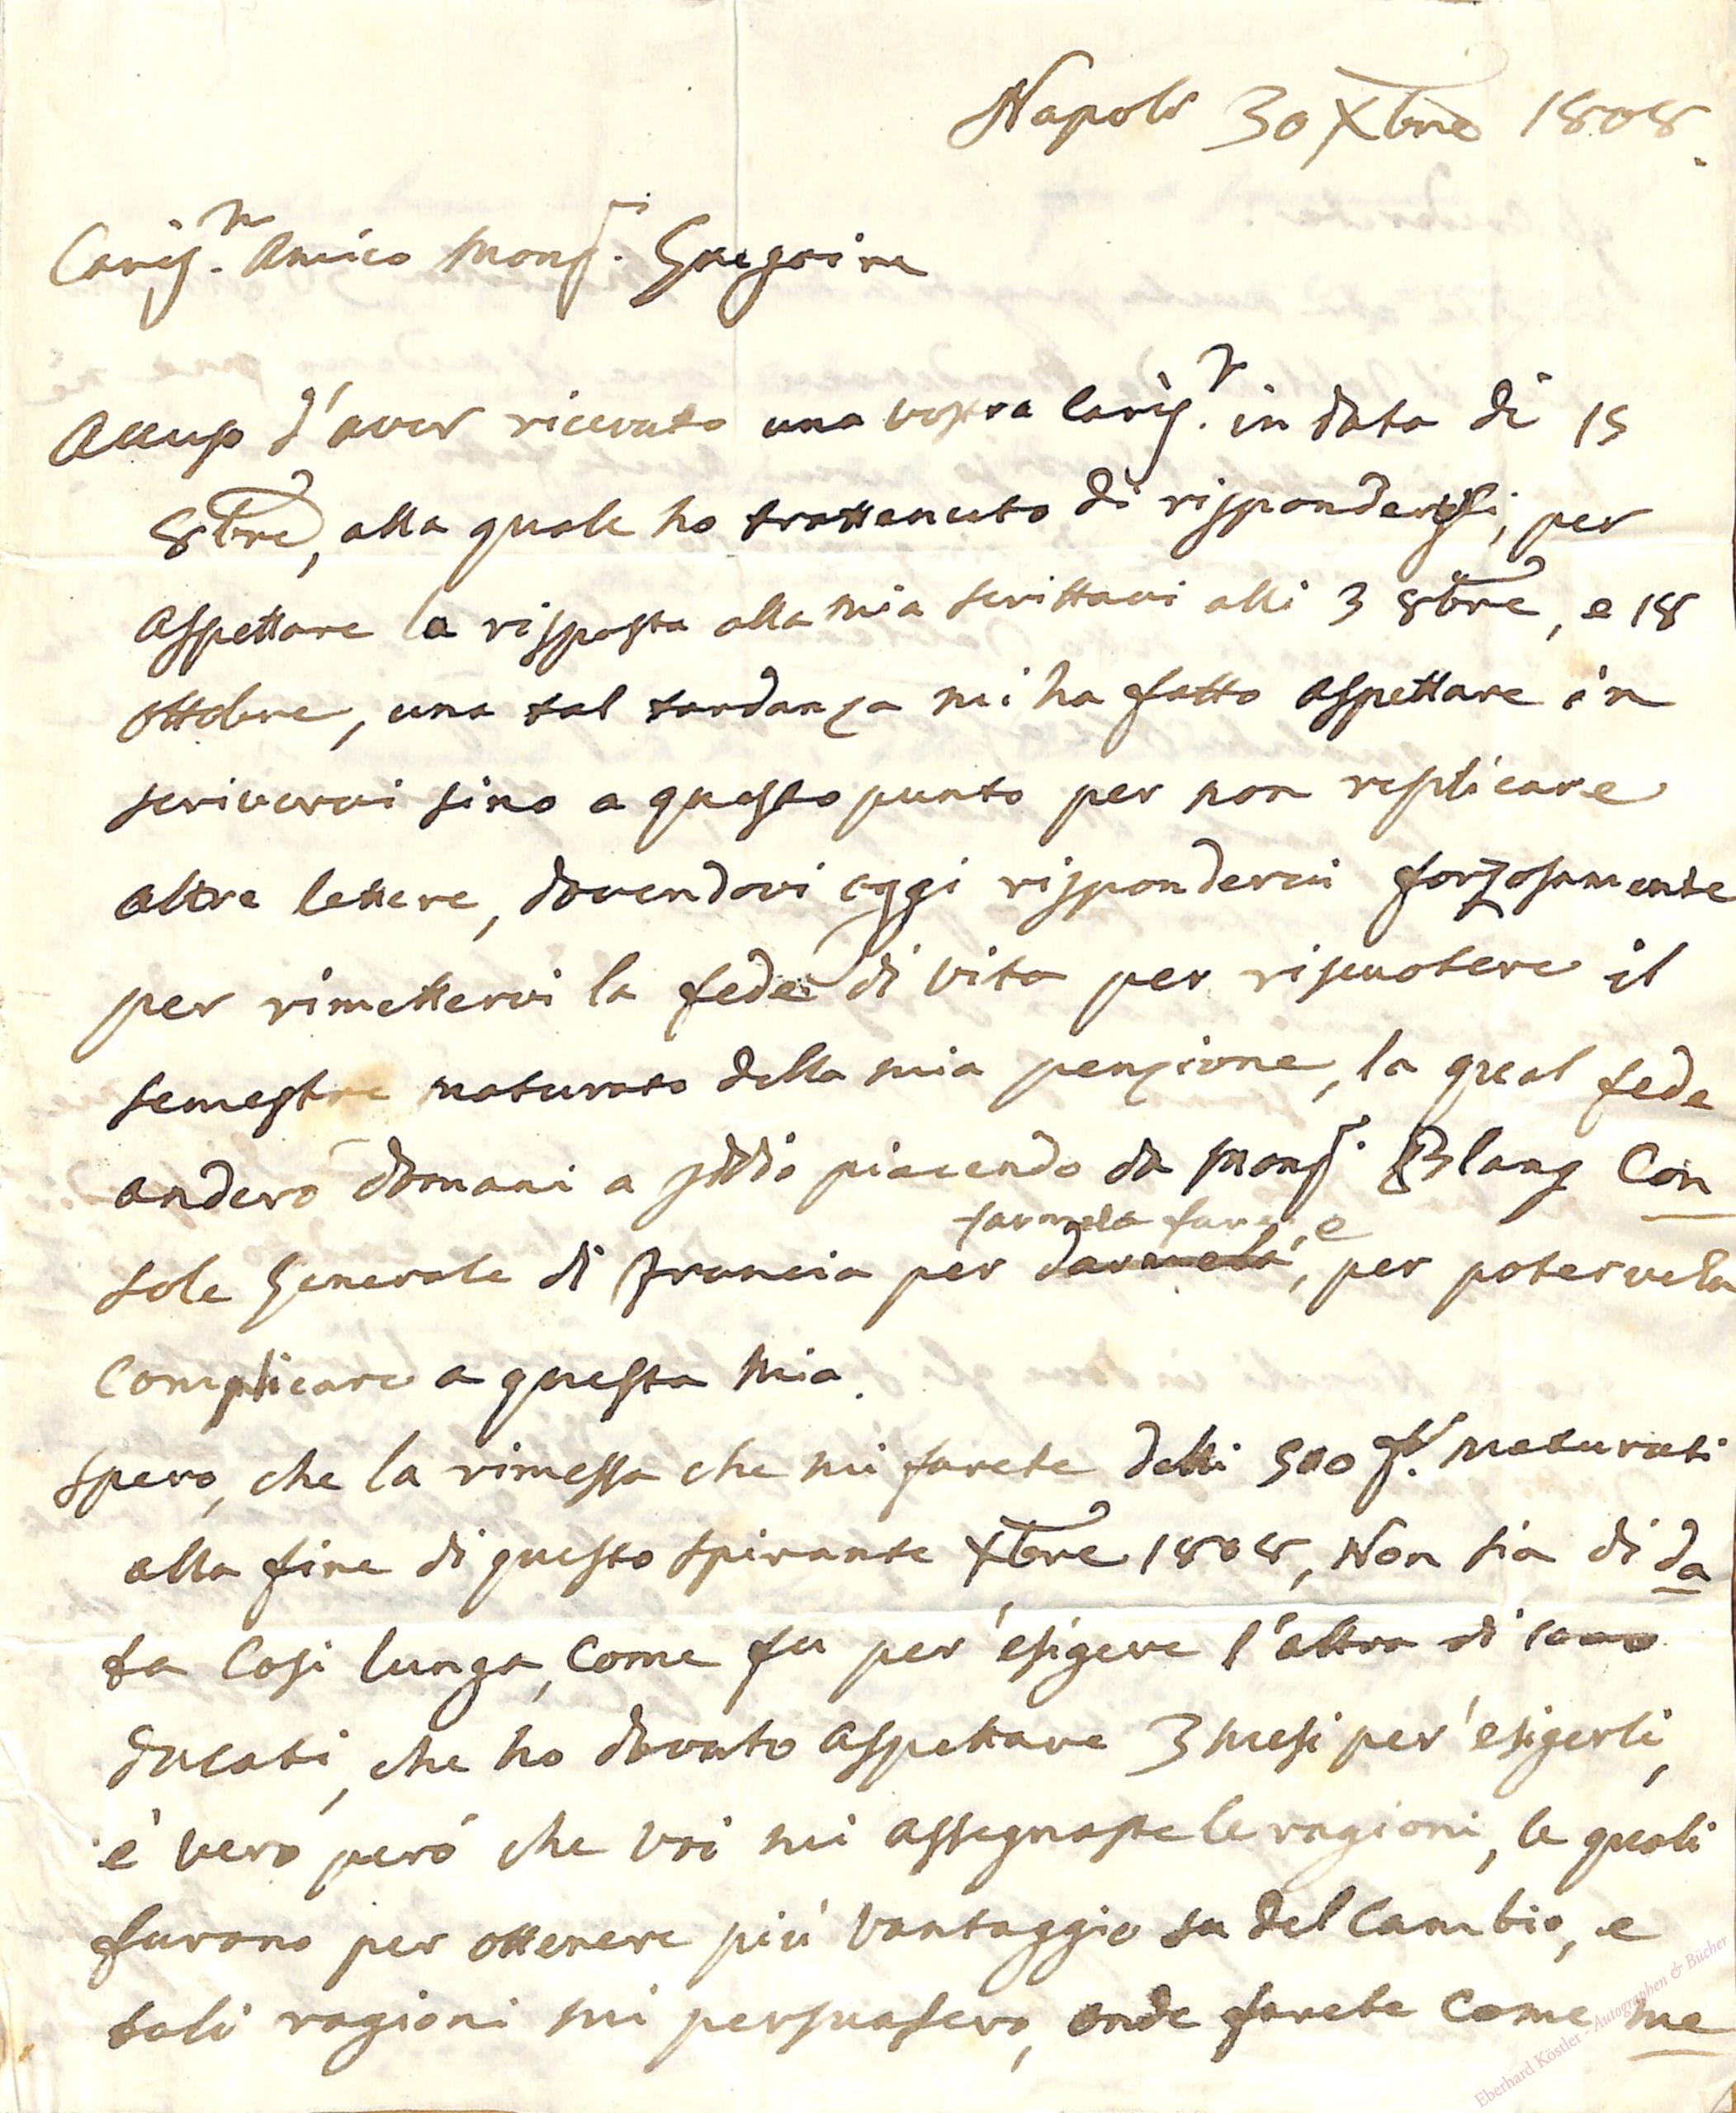 Napoli 30 Xbre 1808.
Cariss.mo Amico Mons.r Gregoire
Accuso d'aver ricevuto una vostra Cariss.ma in data di 15
8bre, alla quale ho trattenuto di risponder, per
aspettare la risposta alla mia scrittavi alli 3 8bre, e 18
Ottobre, una tal tardanza mi ha fatto aspettare in
scrivervi sino a questo punto per non replicare
altre lettere, dovendovi oggi rispondervi forzosamente
per rimettervi la fede di vita per riscuotere il
semestre maturato della mia penzione, la qual fede
anderò domani a Iddio piacendo da Mons.r Blang Con
farmela fare, e
sole Generale di Francia per darmela, per potervela
Complicare a questa mia.
Spero, che la rimessa che mi farete delli 500 f.chi maturati
alla fine di questo spirante Xbre 1808, Non sia di da
ta Così lunga, Come fu per esigere l'altra di
ducati, che ho dovuto aspettare 3 mesi per esigerli,
è vero però che voi mi assegnaste le ragioni, le quali
furono per ottenere più vantaggio su del Cambio, e
tali ragioni mi persuasero, onde farete Come me
Eberhard Köstler - Autographen & Bücher